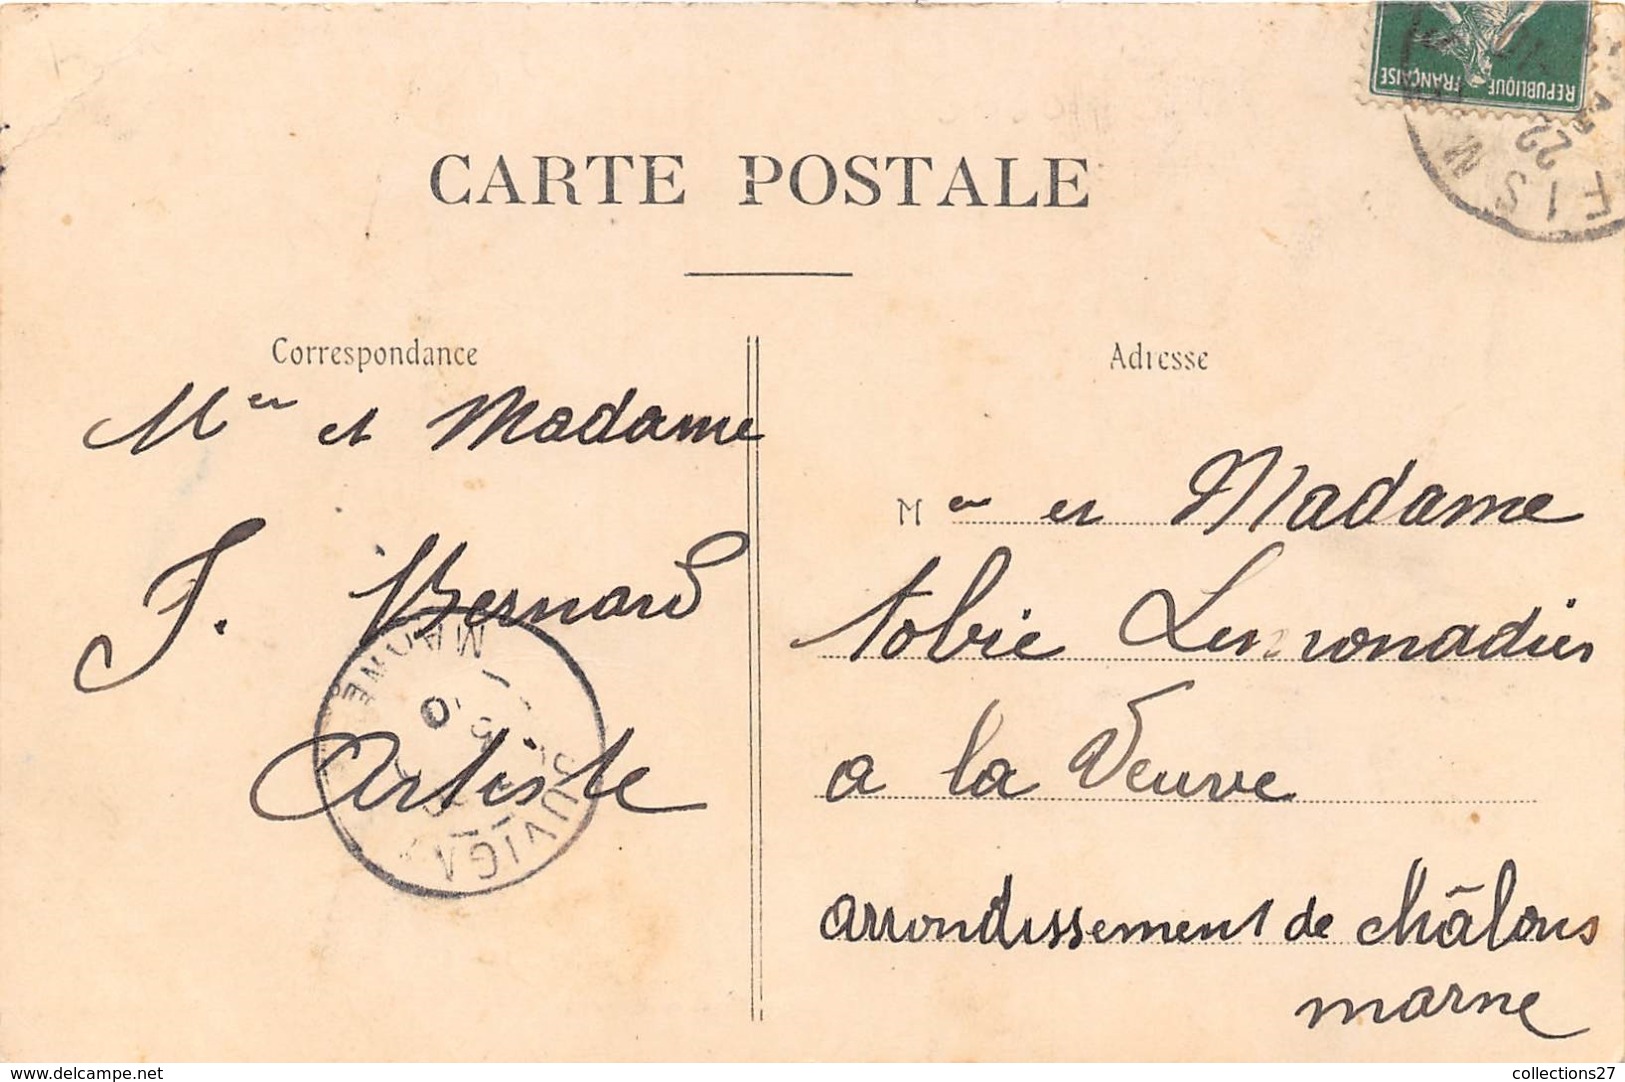 REPUBLIQUE FRANÇAISE
22
CARTE POSTALE
Correspondance
Mer et Madame
J. Bernard
Artiste
MARNE
Adresse
Mer et Madame
tobie Lemonadier
a la Veuve
arrondissement de Châlons
marne
delcampe.net
collections27